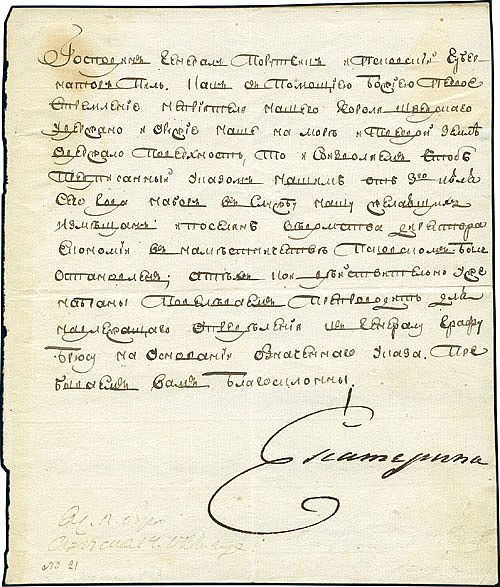 Господинъ Генералъ Порутчикъ и Псковскiй Губер-
наторъ Пиль. Какъ съ Помощiю Божiею Первое
Стремленiе непрiятеля нашего Короля Шведскаго
Удержано и оружiе наше на морѣ и твердой землѣ
одержало Поверхность, То и соизволяемъ чтобъ
Предписанный Указомъ нашимъ отъ июля
сего года наборъ въ службу нашу желающихъ
изъ мѣщанъ и поселянъ вѣдомства директора
економiи въ намѣстничествѣ Псковскомъ былъ
остановленъ; а тѣхъ кои дѣйствительно уже
набраны Повелѣваемъ препроводить для
надлежащаго опредѣленiя къ Генералу Графу
Брюсу на основанiи означеннаго указа. Пре
бываемъ вамъ благосклонны.
Екатерина
№ 21